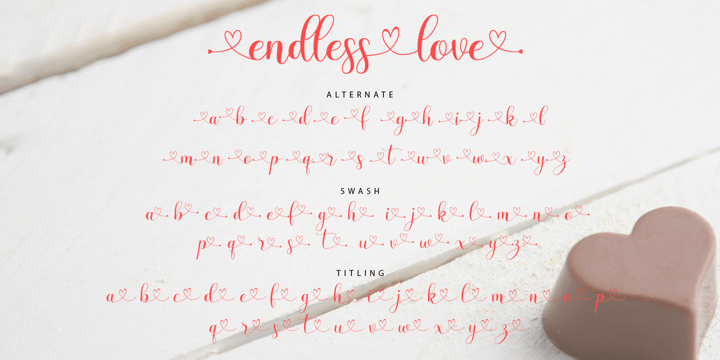 endless love
ALTERNATE
a b c d e f g h i j k l
m n o p q r s t u v w x y z
SWASH
a b c d e f g h i j k l m n o
p q r s t u v w x y z
TITLING
a b c d e f g h i j k l m n o p
q r s t u v w x y z